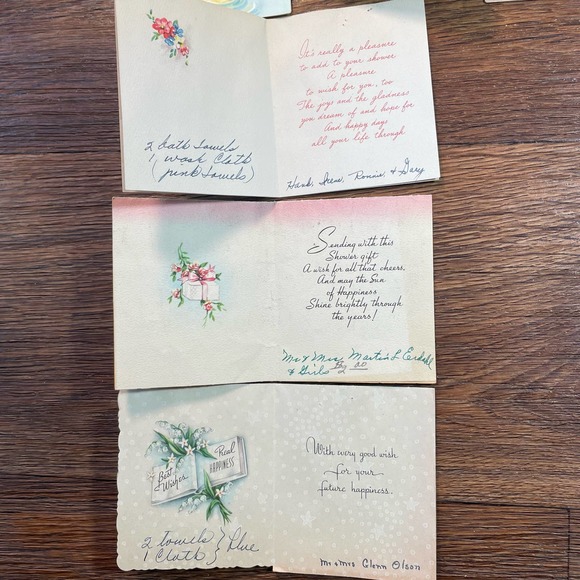 It's really a pleasure
to add to your shower
A pleasure
to wish for you, too
The joys and the gladness
you dream of and hope for
And happy days
all your life through
2 bath towels
1 wash cloth
(pink towels)
Hank, Irene, Ronnie, & Gary
Sending with this
Shower gift
A wish for all that cheers,
And may the Sun
of Happiness
Shine brightly through
the years!
Mr & Mrs. Martin L Erdahl
& Girls
2 00
Best
Wishes
Real
HAPPINESS
With every good wish
for your
future happiness.
2 towels } Blue
1 cloth }
Mr & Mrs Glenn Olson